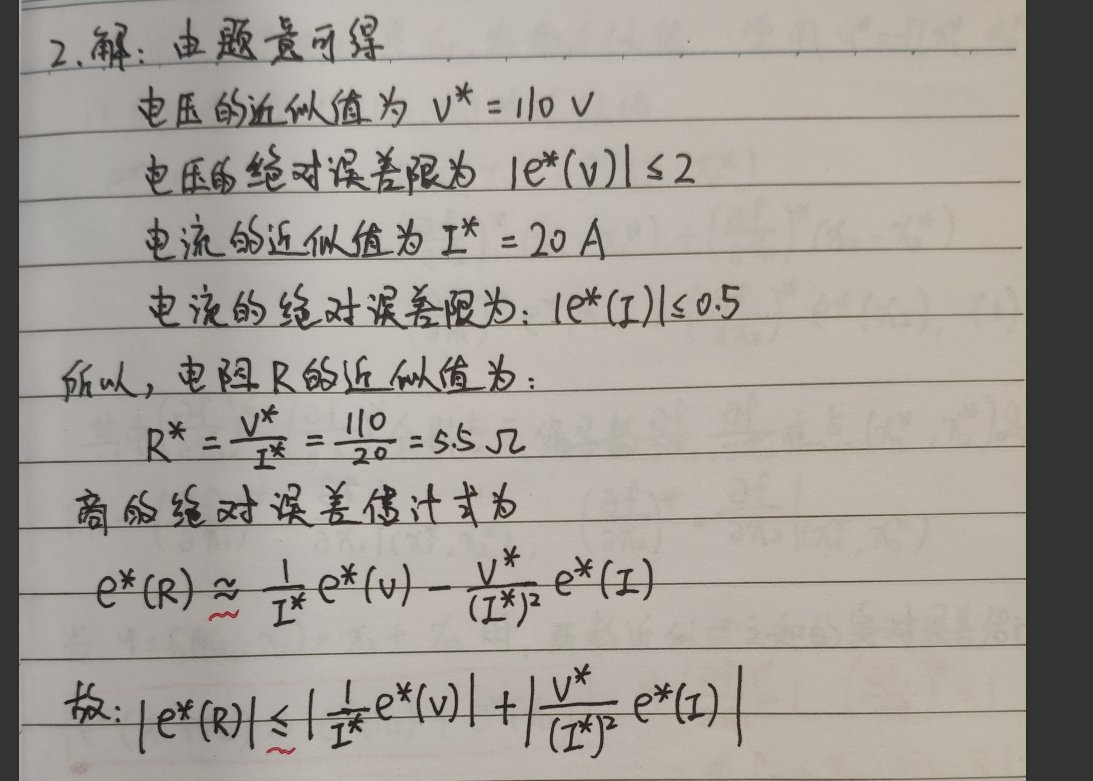 2.解：由题意可得
电压的近似值为 V* = 110 V
电压的绝对误差限为 |e*(V)| ≤ 2
电流的近似值为 I* = 20 A
电流的绝对误差限为：|e*(I)| ≤ 0.5
所以，电阻R的近似值为：
R* = V*/I* = 110/20 = 5.5 Ω
商的绝对误差估计式为
e*(R) ≈ 1/I* e*(V) - V*/(I*)² e*(I)
故：|e*(R)| ≤ |1/I* e*(V)| + |V*/(I*)² e*(I)|